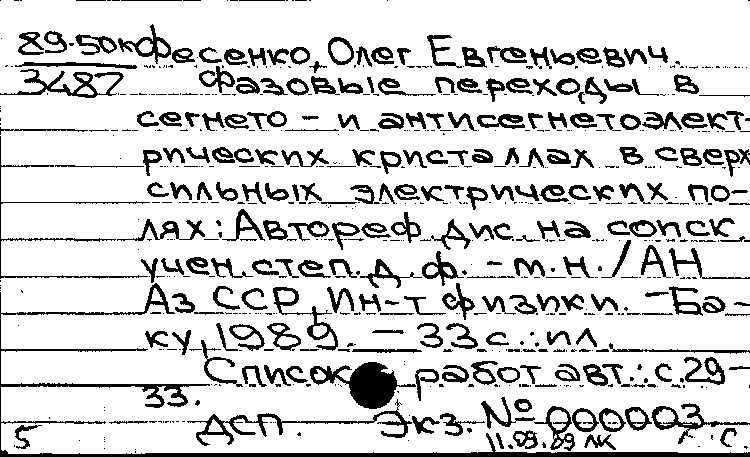 89-50к Фесенко, Олег Евгеньевич.
3487 Фазовые переходы в
сегнето - и антисегнетоэлект-
рических кристаллах в сверх
сильных электрических по-
лях: Автореф. дис. на соиск.
учен. степ. д. ф. - м. н. / АН
Аз ССР, Ин-т физики. - Ба-
ку, 1989. - 33 с.: ил.
Список работ авт.: с. 29-
33.
ДСП. Экз. № 000003.
5 11.09.89 ЛК